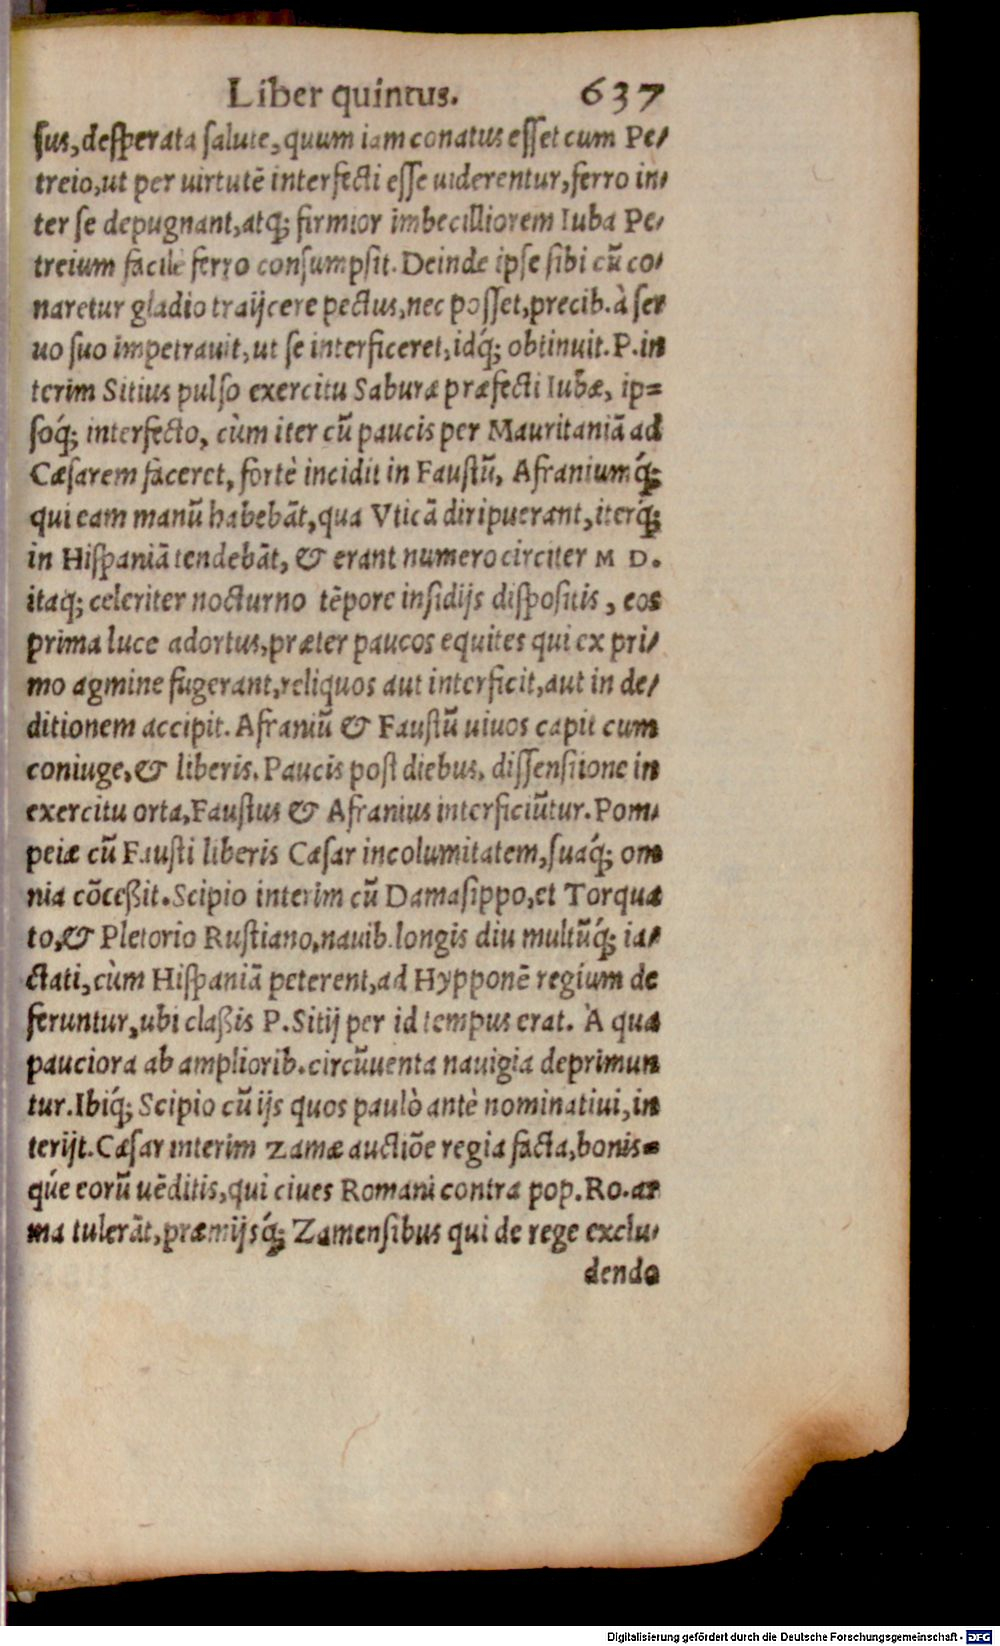 Liber quintus. 637
sus, desperata salute, quum iam conatus esset cum Pe/
treio, ut per uirtutē interfecti esse uiderentur, ferro in/
ter se depugnant, atq; firmior imbecilliorem Iuba Pe/
treium facile ferro consumpsit. Deinde ipse sibi cū co/
naretur gladio traijcere pectus, nec posset, precib. à ser
uo suo impetrauit, ut se interficeret, idq́; obtinuit. P. in
terim Sitius pulso exercitu Saburæ præfecti Iubæ, ip=
soq́; interfecto, cùm iter cū paucis per Mauritaniā ad
Cæsarem faceret, fortè incidit in Faustū, Afraniumq́;
qui eam manū habebāt, qua Vticā diripuerant, iterq́;
in Hispaniā tendebāt, & erant numero circiter M D.
itaq; celeriter nocturno tēpore insidijs dispositis, eos
prima luce adortus, præter paucos equites qui ex pri/
mo agmine fugerant, reliquos aut interficit, aut in de/
ditionem accipit. Afraniū & Faustū uiuos capit cum
coniuge, & liberis. Paucis post diebus, dissensione in
exercitu orta, Faustus & Afranius interficiūtur. Pom/
peiæ cū Fausti liberis Cæsar incolumitatem, suaq́; om
nia cōceßit. Scipio interim cū Damasippo, et Torqua
to, & Pletorio Rustiano, nauib. longis diu multūq́; ia/
ctati, cùm Hispaniā peterent, ad Hypponē regium de
feruntur, ubi claßis P. Sitij per id tempus erat. À qua
pauciora ab ampliorib. circūuenta nauigia deprimun
tur. Ibiq́; Scipio cū ijs quos paulò antè nominatiui, in
terijt. Cæsar interim Zamæ auctiōe regia facta, bonis=
qúe eorū uēditis, qui ciues Romani contra pop. Ro. ar
ma tulerāt, præmijsq́; Zamensibus qui de rege exclu/
dendo
Digitalisierung gefördert durch die Deutsche Forschungsgemeinschaft - DFG